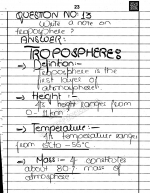 23
QUESTION NO 13
Write a note on
troposphere?
ANSWER:
TROPOSPHERE:
→ Definition:-
Troposphere is the
1st layer of
atmosphere.
→ Height :-
It's height ranges from
0 - 11km.
→ Temperature:-
It's temperature ranges
from 15°C to -56°C
→ Mass :- It constitutes
about 80% mass of
atmosphere